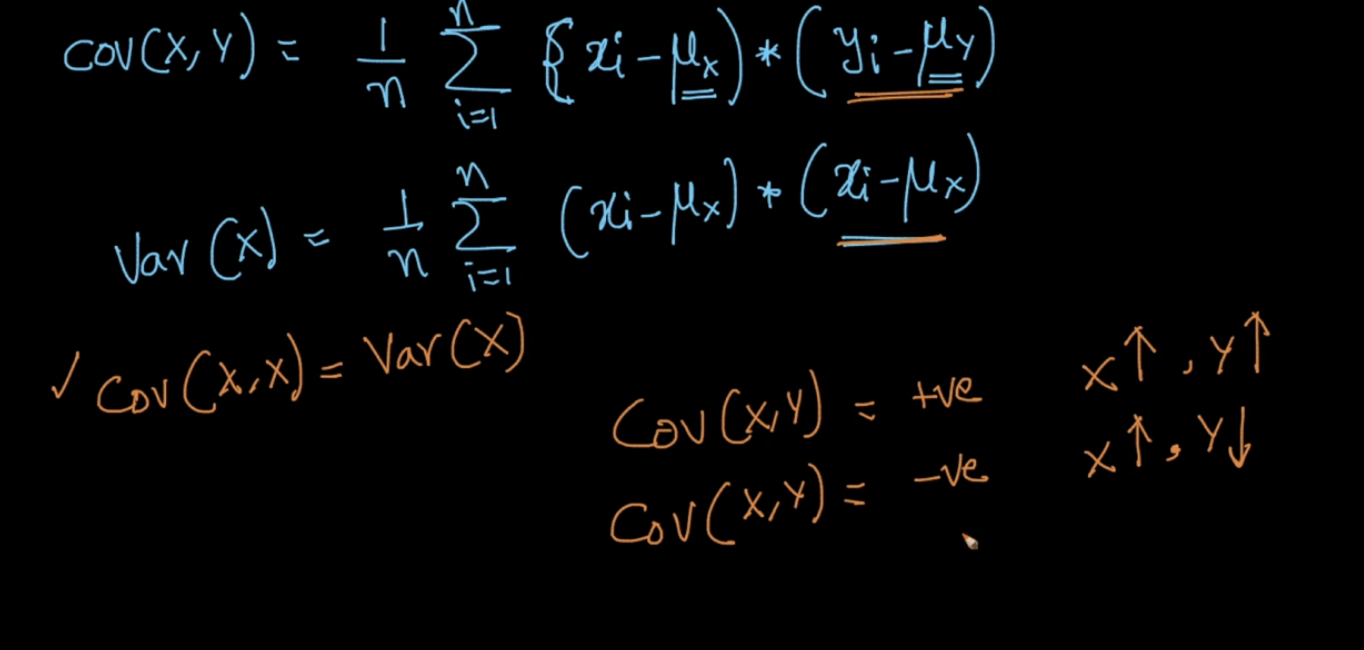 COV(X,Y) = 1/n Σ_{i=1}^{n} {xi-μx)*(yi-μy)
Var(X) = 1/n Σ_{i=1}^{n} (xi-μx)*(xi-μx)
✓ Cov(X,X) = Var(X)
Cov(X,Y) = +ve X↑, Y↑
Cov(X,Y) = -ve X↑, Y↓